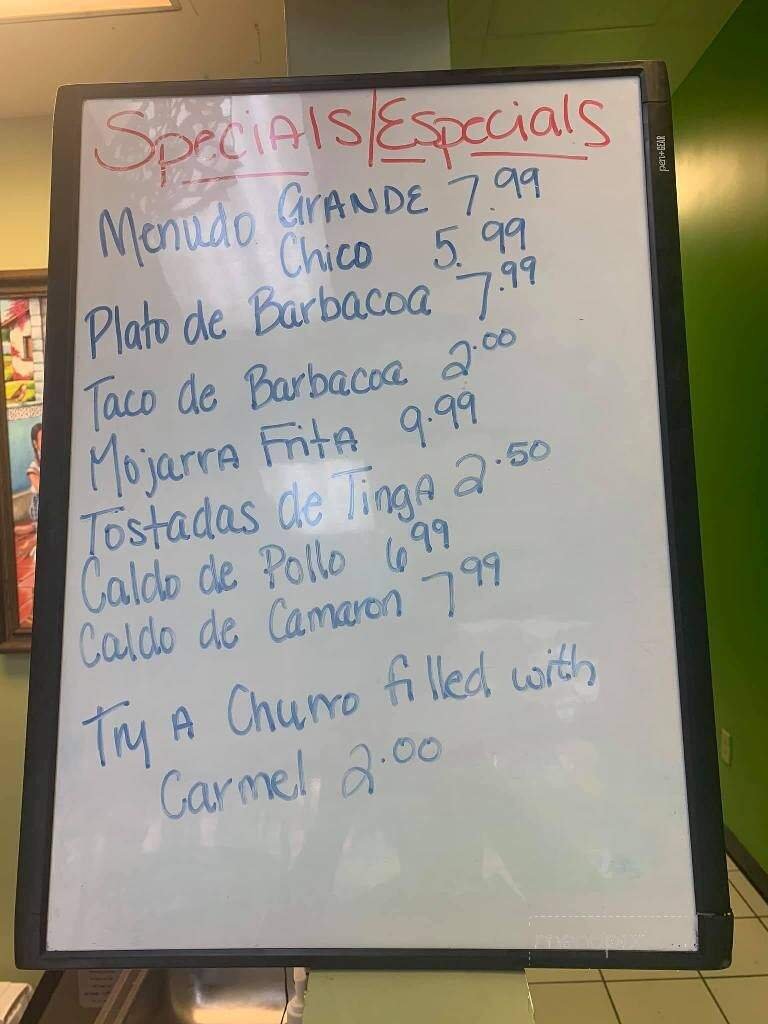 Specials/Especials
Menudo GRANDE 7.99
Chico 5.99
Plato de Barbacoa 7.99
Taco de Barbacoa 2.00
Mojarra Frita 9.99
Tostadas de Tinga 2.50
Caldo de Pollo 6 99
Caldo de Camaron 7 99
Try A Churro filled with
Carmel 2.00
pen+GEAR